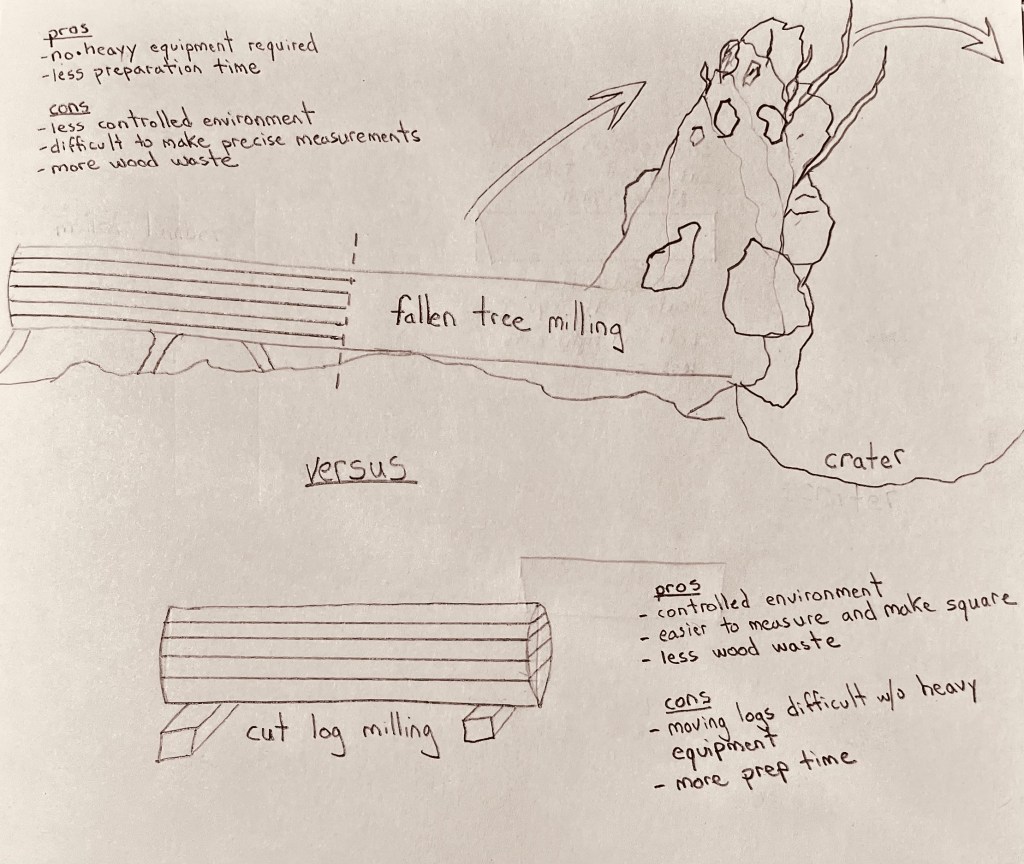 pros
- no heavy equipment required
- less preparation time
cons
- less controlled environment
- difficult to make precise measurements
- more wood waste
fallen tree milling
crater
versus
pros
- controlled environment
- easier to measure and make square
- less wood waste
cons
- moving logs difficult w/o heavy
equipment
- more prep time
cut log milling